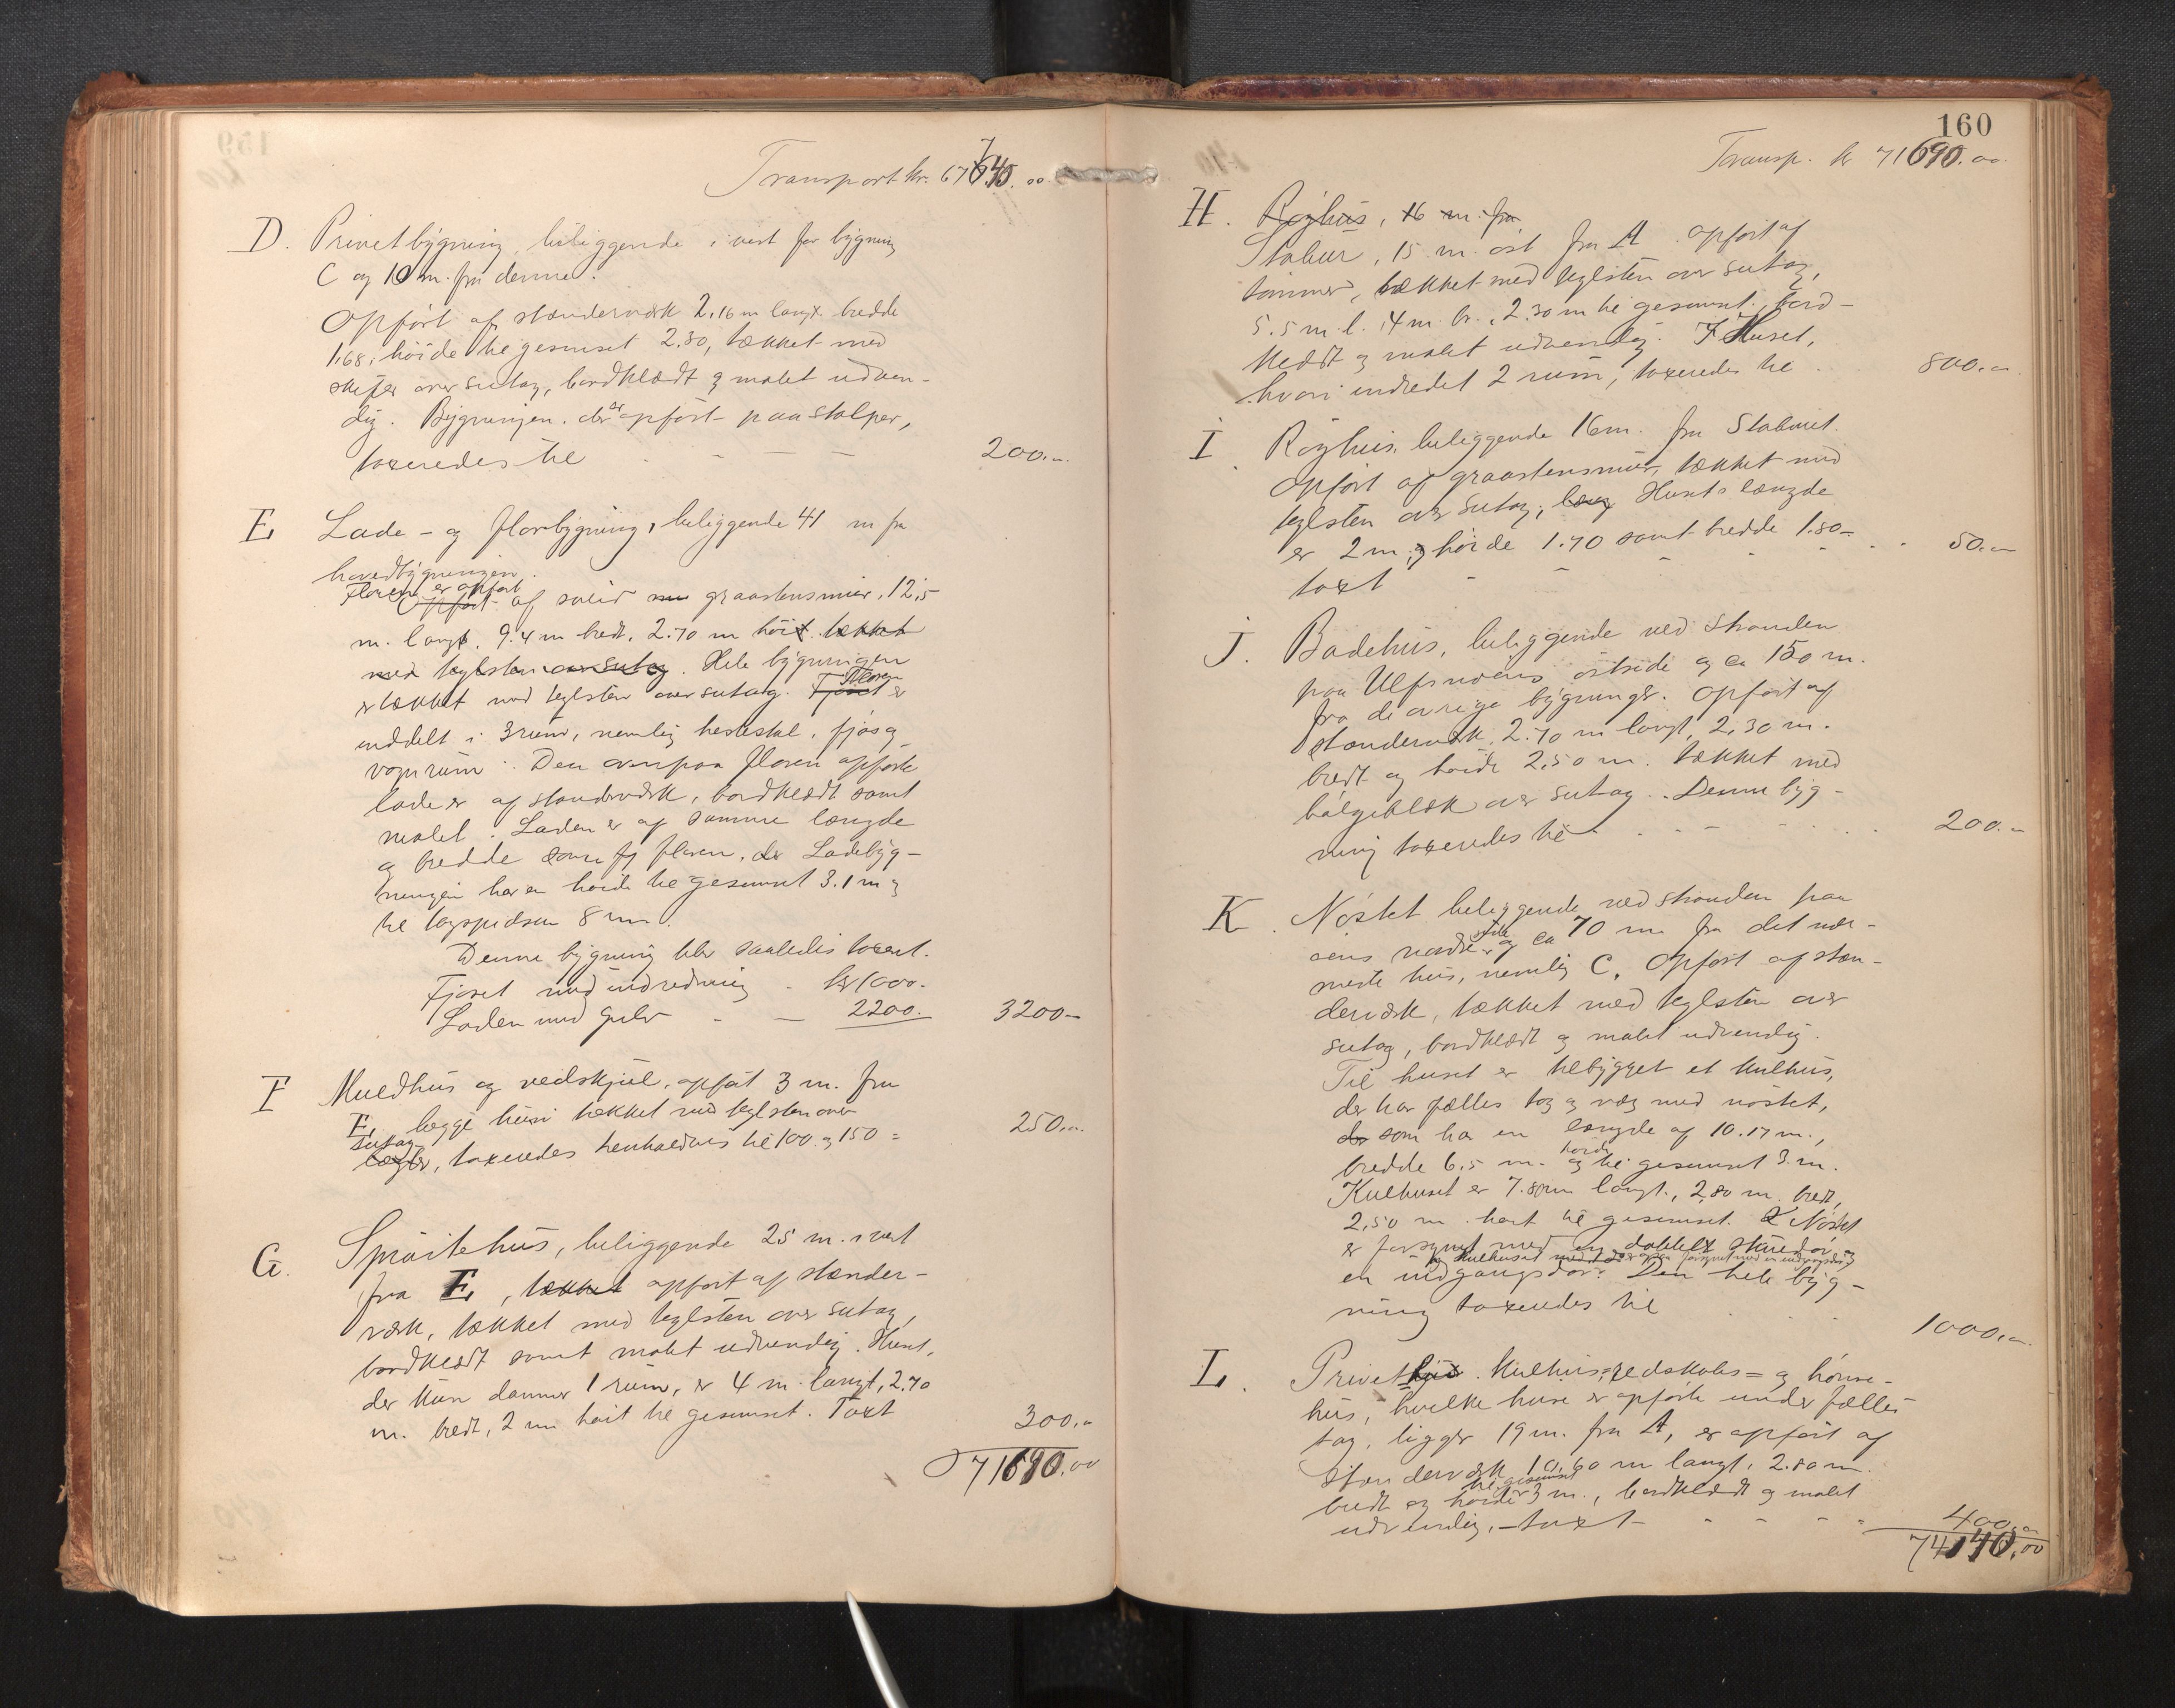 Transport kr. 67740.00
D. Privetbygning, beliggende i vest for bygning
C og 10 m. fra denne.
Opført af stænderværk 2,16 m langt. bredde
1,68, höide til gesimset 2.30, tækket med
skifer over sutag, bordklædt og malet udven-
dig. Bygningen. der er opført paa stolper,
taxeredes til - - - - 200.00
E Lade- og florbygning, beliggende 41 m fra
hovedbygningen.
Floren er opført
Opført af solid graastensmur, 12,5
m. langt. 9.4 m bredt, 2.70 m höit. tækket
med teglsten over sutag. Hele bygningen
er tækket med teglsten over sutag. Fjöset Floren er
inddelt i 3 rum, nemlig hestestal, fjös og
vognrum. Den ovenpaa floren opførte
lade er af stænderværk, bordklædt samt
malet. Laden er af samme længde
og bredde som floren. Ladebyg-
ningen har en höide til gesimset 3.1 m og
til tagspidsen 8 m.
Denne bygning blev saaledes taxeret.
Fjöset med indredning - kr 1000.
Laden med gulv - - 2200. 3200-
F Muldhus og vedskjul, opført 3 m. fra
E, begge huse tækket med teglsten over
sutag
lægter, taxeredes henholdsvis til 100 og 150 = 250.00
G. Spröitehus, beliggende 25 m. i vest
fra E, tækket opført af stænder-
værk, tækket med teglsten over sutag,
bordklædt samt malet udvendig. Huset,
der kun danner 1 rum, er 4 m. langt, 2.70
m. bredt, 2 m höit til gesimset. Taxt 300.00
71690.00
160
Transp. kr 71690.00
H. Röghus, 16 m. fra
Stabur, 15 m. öst fra A. opført af
tömmer, tækket med teglsten over sutag,
5.5 m. l. 4 m. br., 2.30 m til gesimset. bord-
klædt og malet udvendig. I Huset,
hvori indredet 2 rum, taxeredes til . . 800.00
I. Röghus, beliggende 16 m. fra Staburet.
Opført af graastensmur, tækket med
teglsten over sutag, lang Husets længde
er 2 m, og höide 1.70 samt bredde 1.80-
taxt - - - - 50.00
J. Badehus, beliggende ved stranden
paa Ulfsnöens östside og ca 150 m.
fra de övrige bygninger. Opført af
stænderværk, 2.70 m langt, 2,30 m.
bredt og höide 2,50 m. tækket med
bölgeblik over sutag. Denne byg-
ning taxeredes til - - - 200.00
K. Nöstet beliggende ved stranden paa
öens nordside og ca 70 m fra det nær-
meste hus, nemlig C. Opført af stæn-
derværk, tækket med teglsten over
sutag, bordklædt og malet udvendig.
Til huset er tilbygget et kulhus,
der har fælles tag og væg med nöstet,
der som har en længde af 10.17 m.,
bredde 6,5 m. og höide til gesimset 3 m.
Kulhuset er 7.80 m langt, 2,80 m. bredt,
2,50 m. höit til gesimset. Nöstet
er forsynet med en dobbelt skuedör og
og kulhuset med forsynet med en indgangsdör
en indgangsdör. Den hele byg-
ning taxeredes til . . . 1000.00
L. Privethus. Kulhus, redskabs- og hönse-
hus, hvilke huse er opførte under fælles
tag, ligger 19 m. fra A, er opført af
stænderværk 10,60 m langt, 2.80 m.
bredt og höide til gesimset 3 m., bordklædt og malet
udvendig, - taxt - - - - 400.00
74140.00